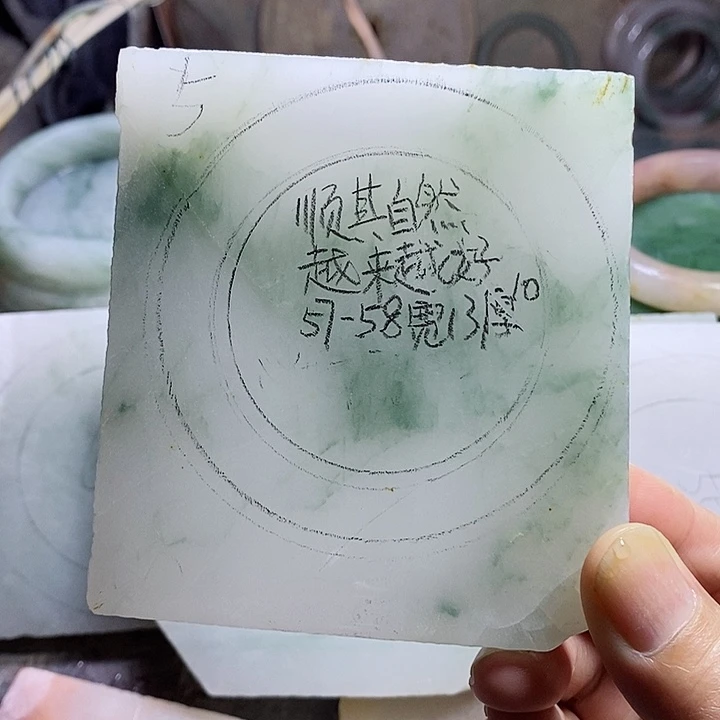 5
顺其自然
越来越好
57-58宽13厚10